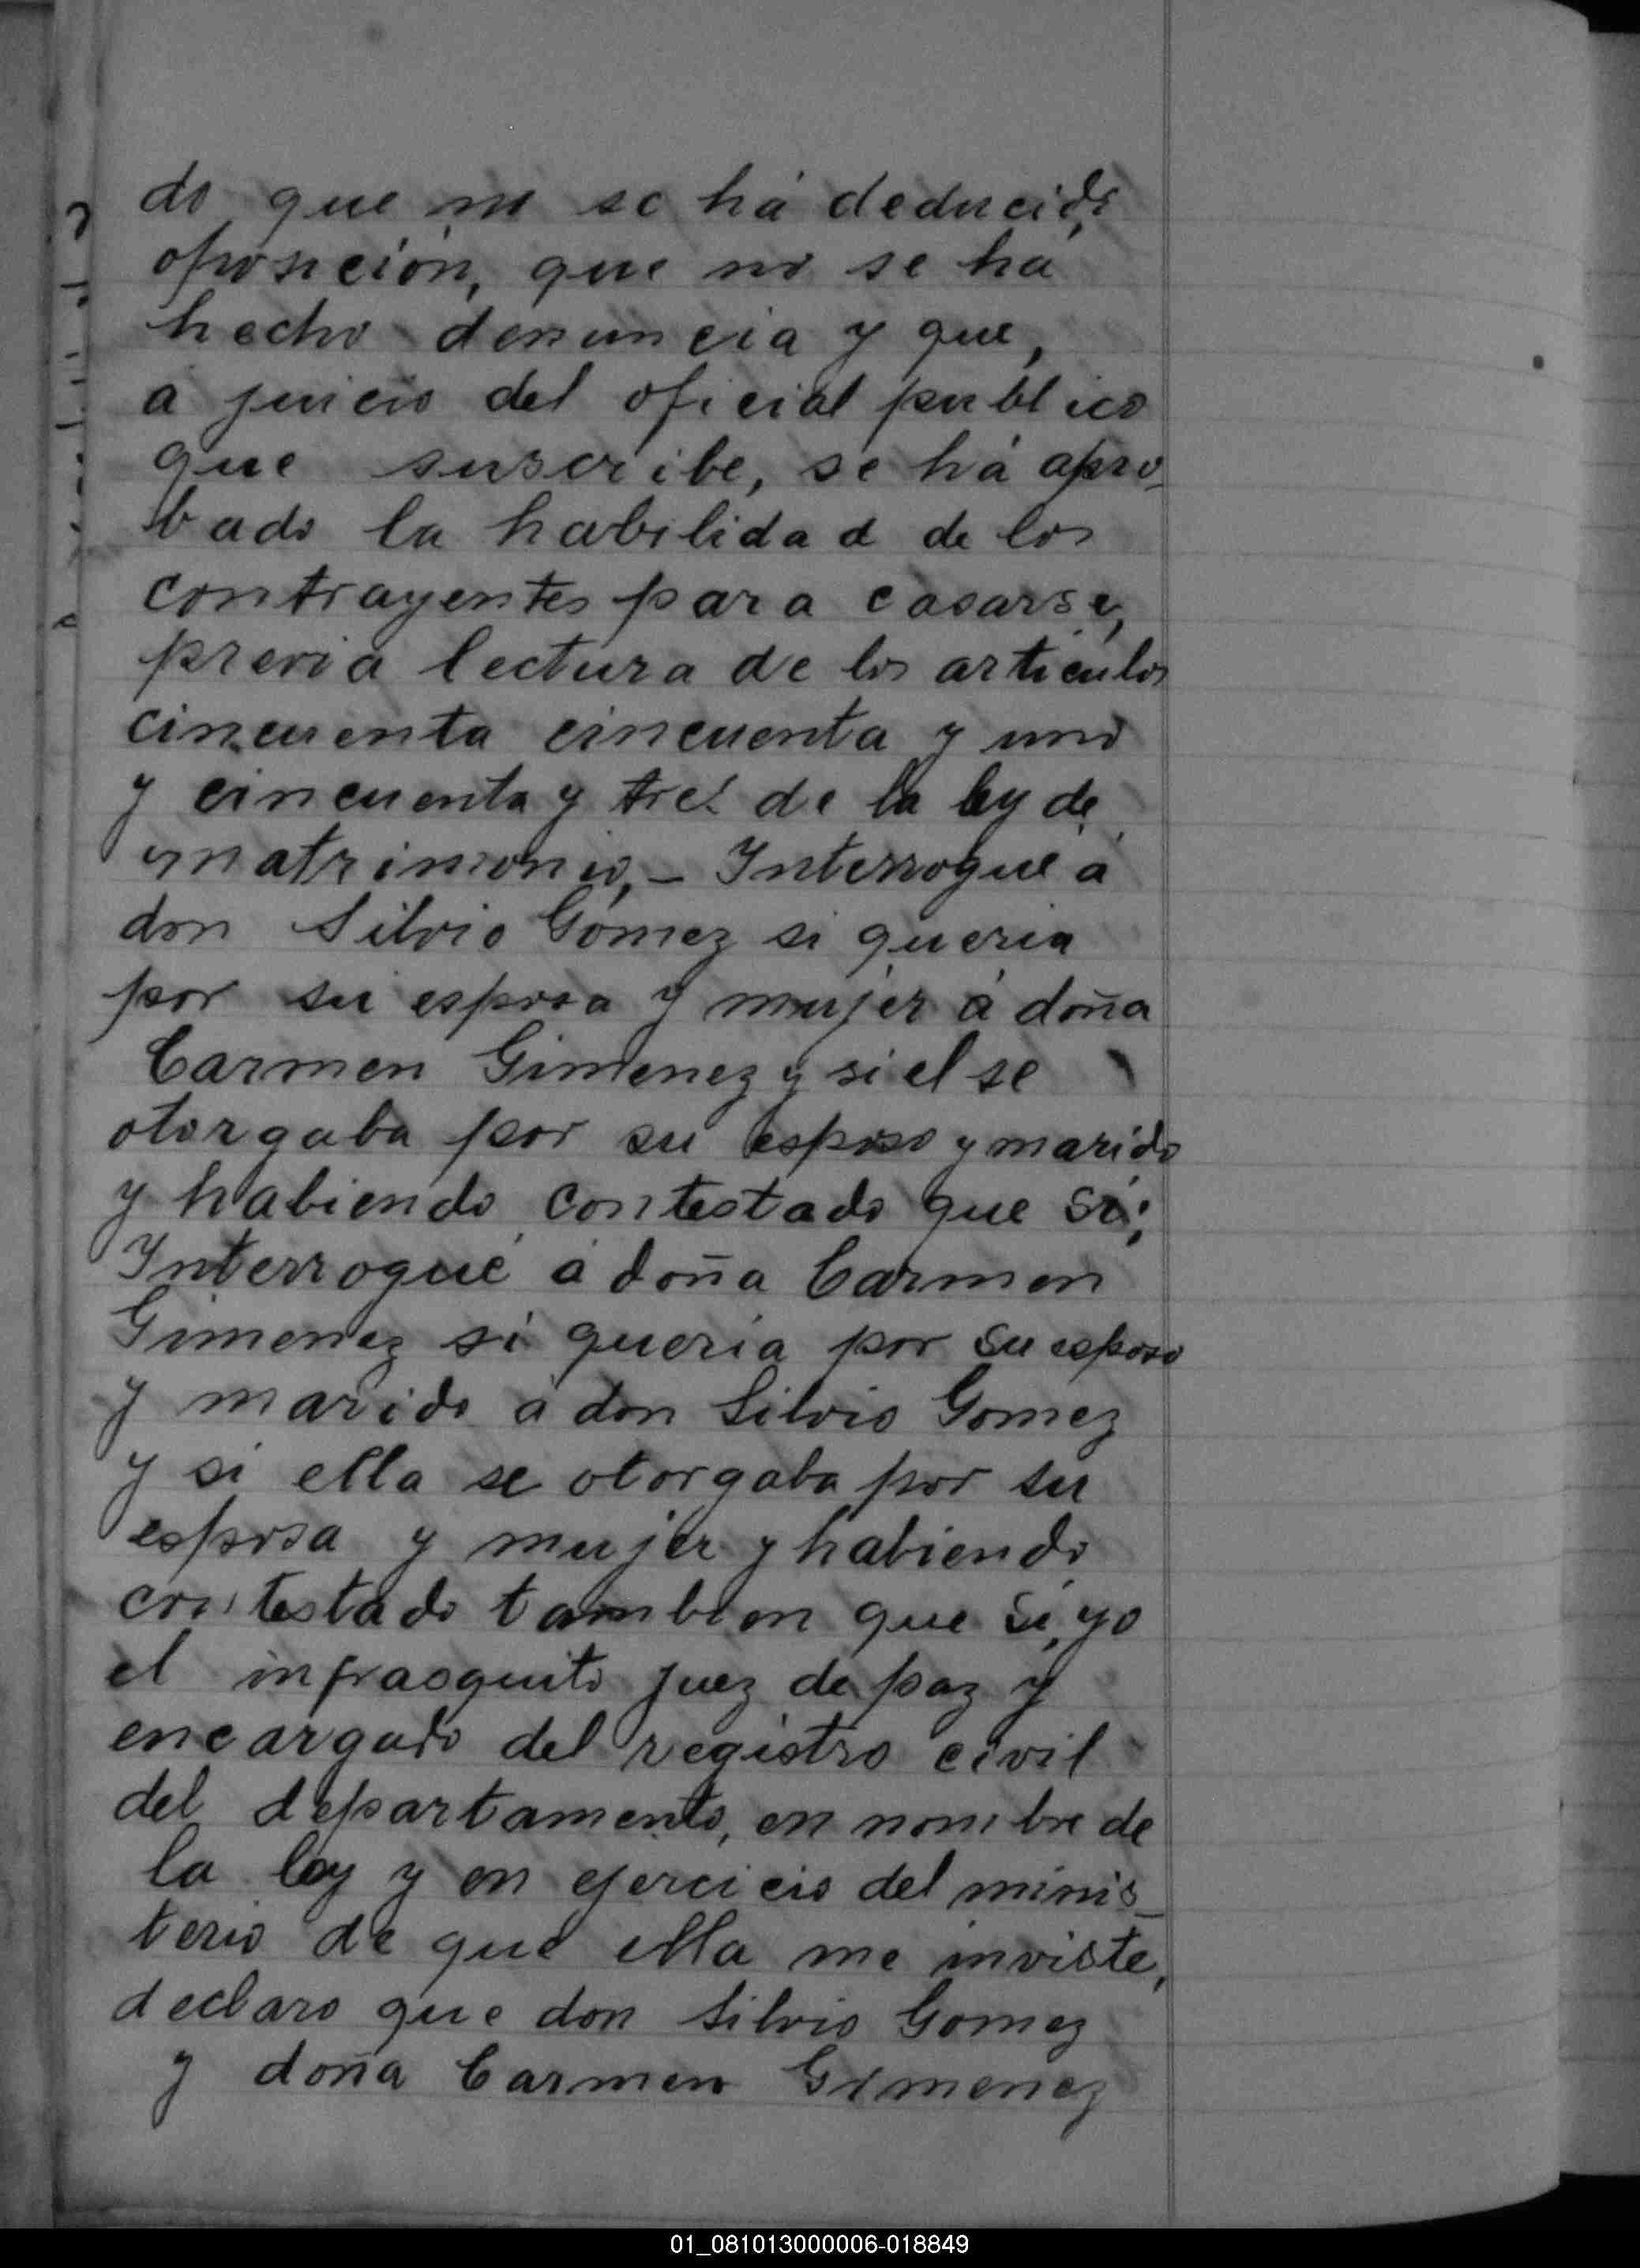 do que no se há deducido
oposición, que no se há
hecho denuncia y que,
a juicio del oficial publico
que suscribe, se há apro-
bado la habilidad de los
contrayentes para casarse,
previa lectura de los articulos
cincuenta cincuenta y uno
y cincuenta y tres de la ley de
matrimonio, - Interrogué á
don Silvio Gómez si queria
por su esposa y mujer á doña
Carmen Gimenez y si el se
otorgaba por su esposo y marido
y habiendo contestado que sí;
Interrogué á doña Carmen
Gimenez si queria por su esposo
y marido á don Silvio Gomez
y si ella se otorgaba por su
esposa y mujer y habiendo
contestado tambien que sí, yo
el infrasquito juez de paz y
encargado del registro civil
del departamento, en nombre de
la ley y en ejercicio del minis-
terio de que ella me inviste,
declaro que don Silvio Gomez
y doña Carmen Gimenez
01_081013000006-018849